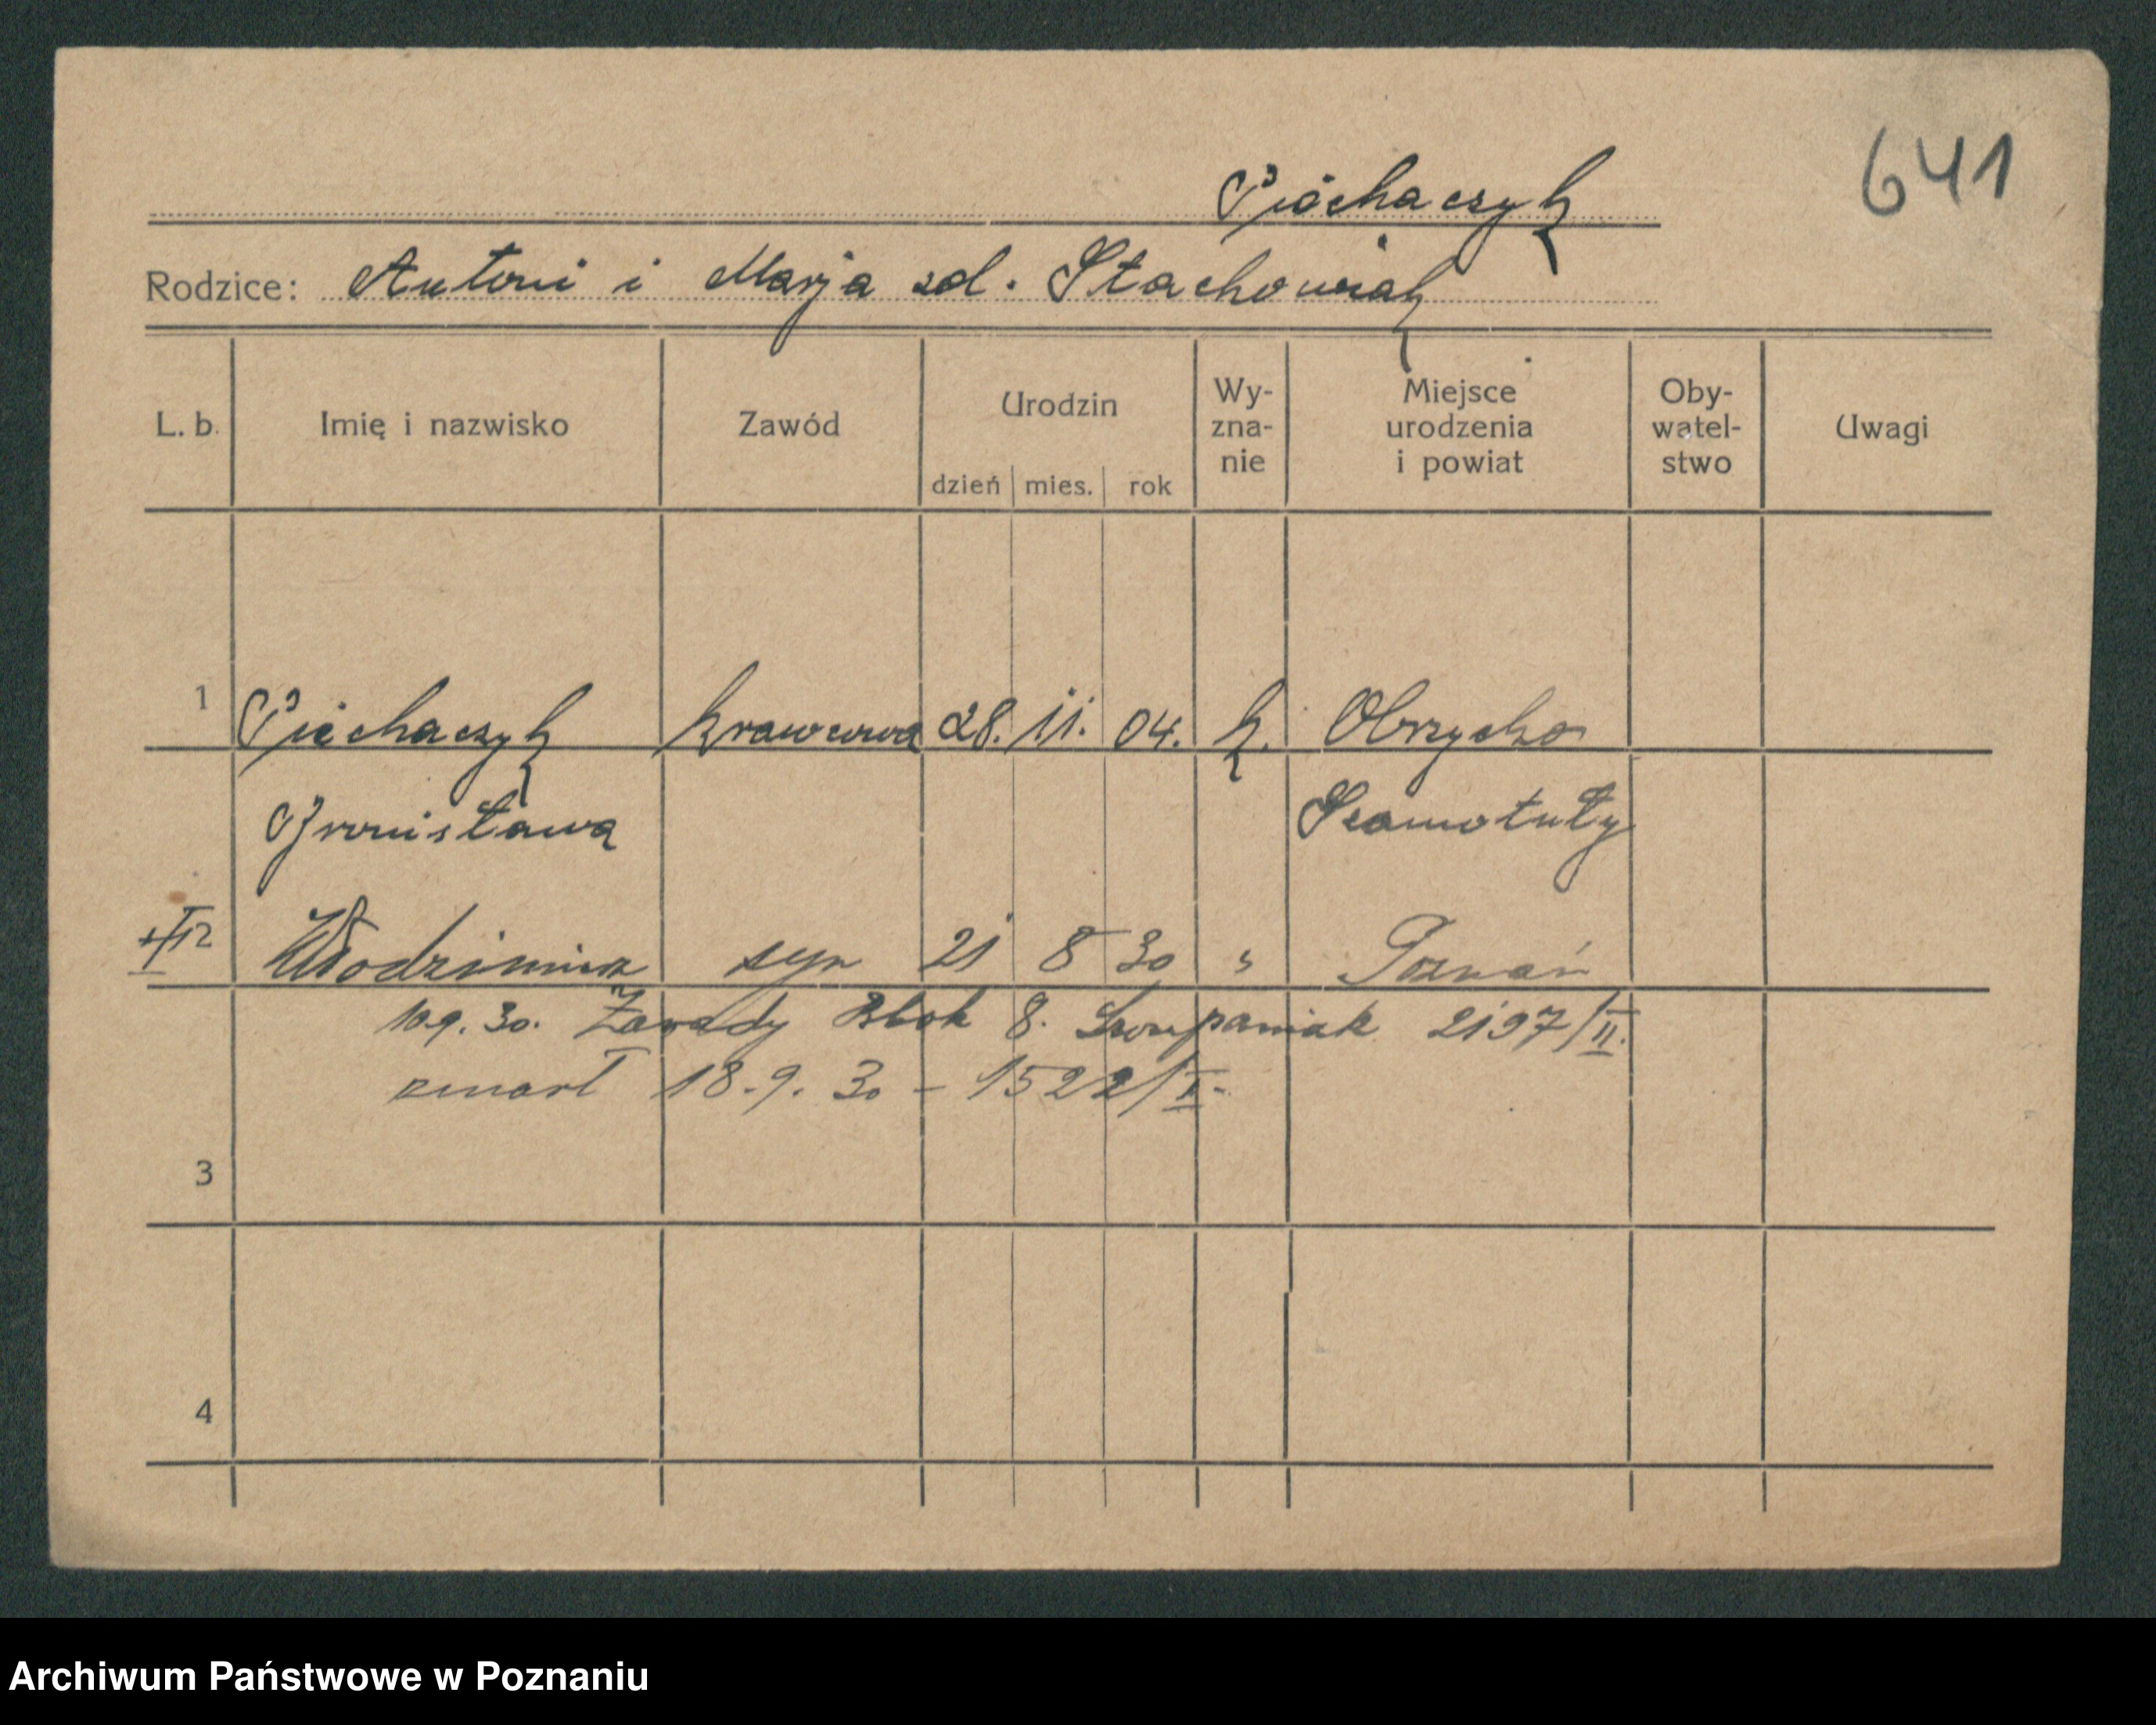 641
Piechaczyk
Rodzice: Antoni i Marja zd. Stachowiak
L. b. Imię i nazwisko Zawód Urodzin dzień mies. rok Wy-zna-nie Miejsce urodzenia i powiat Oby-watel-stwo Uwagi
1 Piechaczyk krawcowa 28. 11. 04. k. Obrzycko
Bronisława Szamotuły
2 Włodzimierz syn 21 8 30 " Poznań
10.9.30. Zawady Blok 8. 2197/II.
zmarł 18.9.30 - 1522/I.
3
4
Archiwum Państwowe w Poznaniu